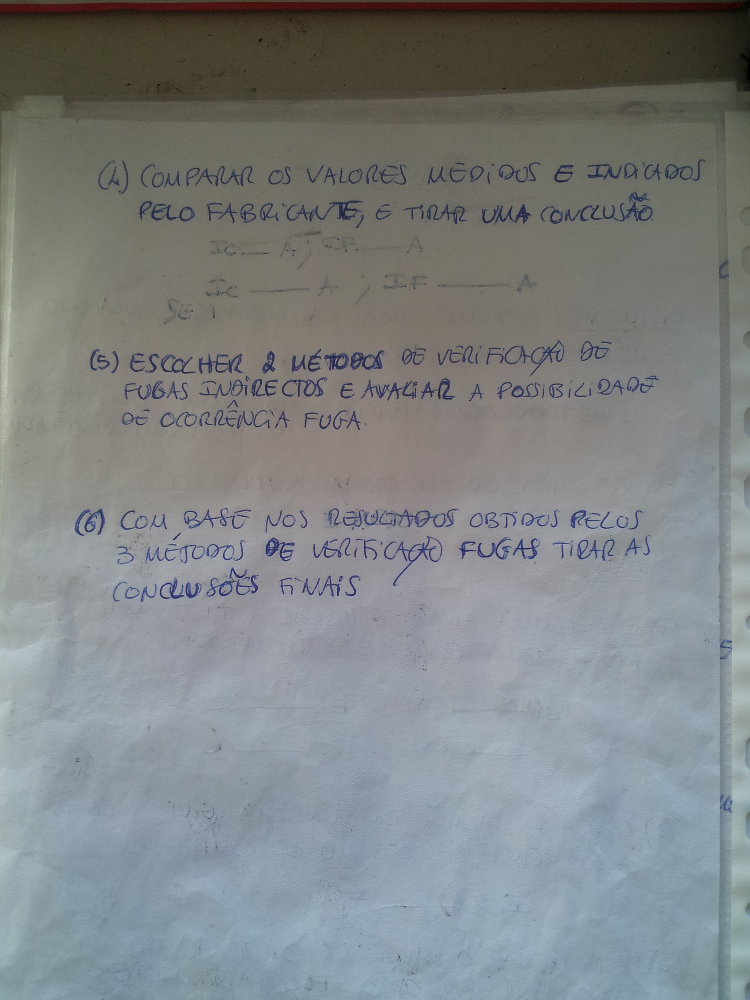 (4) COMPARAR OS VALORES MEDIDOS E INDICADOS
PELO FABRICANTE, E TIRAR UMA CONCLUSÃO
Ic — A ; IF — A
Ic — A ; IF — A
SE
(5) ESCOLHER 2 MÉTODOS DE VERIFICAÇÃO DE
FUGAS INDIRECTOS E AVALIAR A POSSIBILIDADE
DE OCORRÊNCIA FUGA.
(6) COM BASE NOS RESULTADOS OBTIDOS PELOS
3 MÉTODOS DE VERIFICAÇÃO FUGAS TIRAR AS
CONCLUSÕES FINAIS